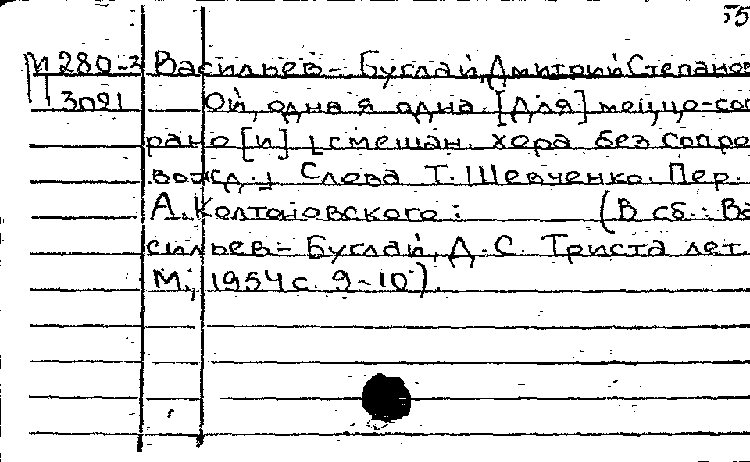 55
М 280-3 Васильев-Буглай, Дмитрий Степанов
3091 Ой, одна я одна. [Для] меццо-соп
рано [и] смешан. хора без сопро
вожд. Слова Т. Шевченко. Пер.
А. Колтоновского: (В сб.: Ва
сильев-Буглай, Д.С. Триста лет.
М., 1954 с. 9-10).